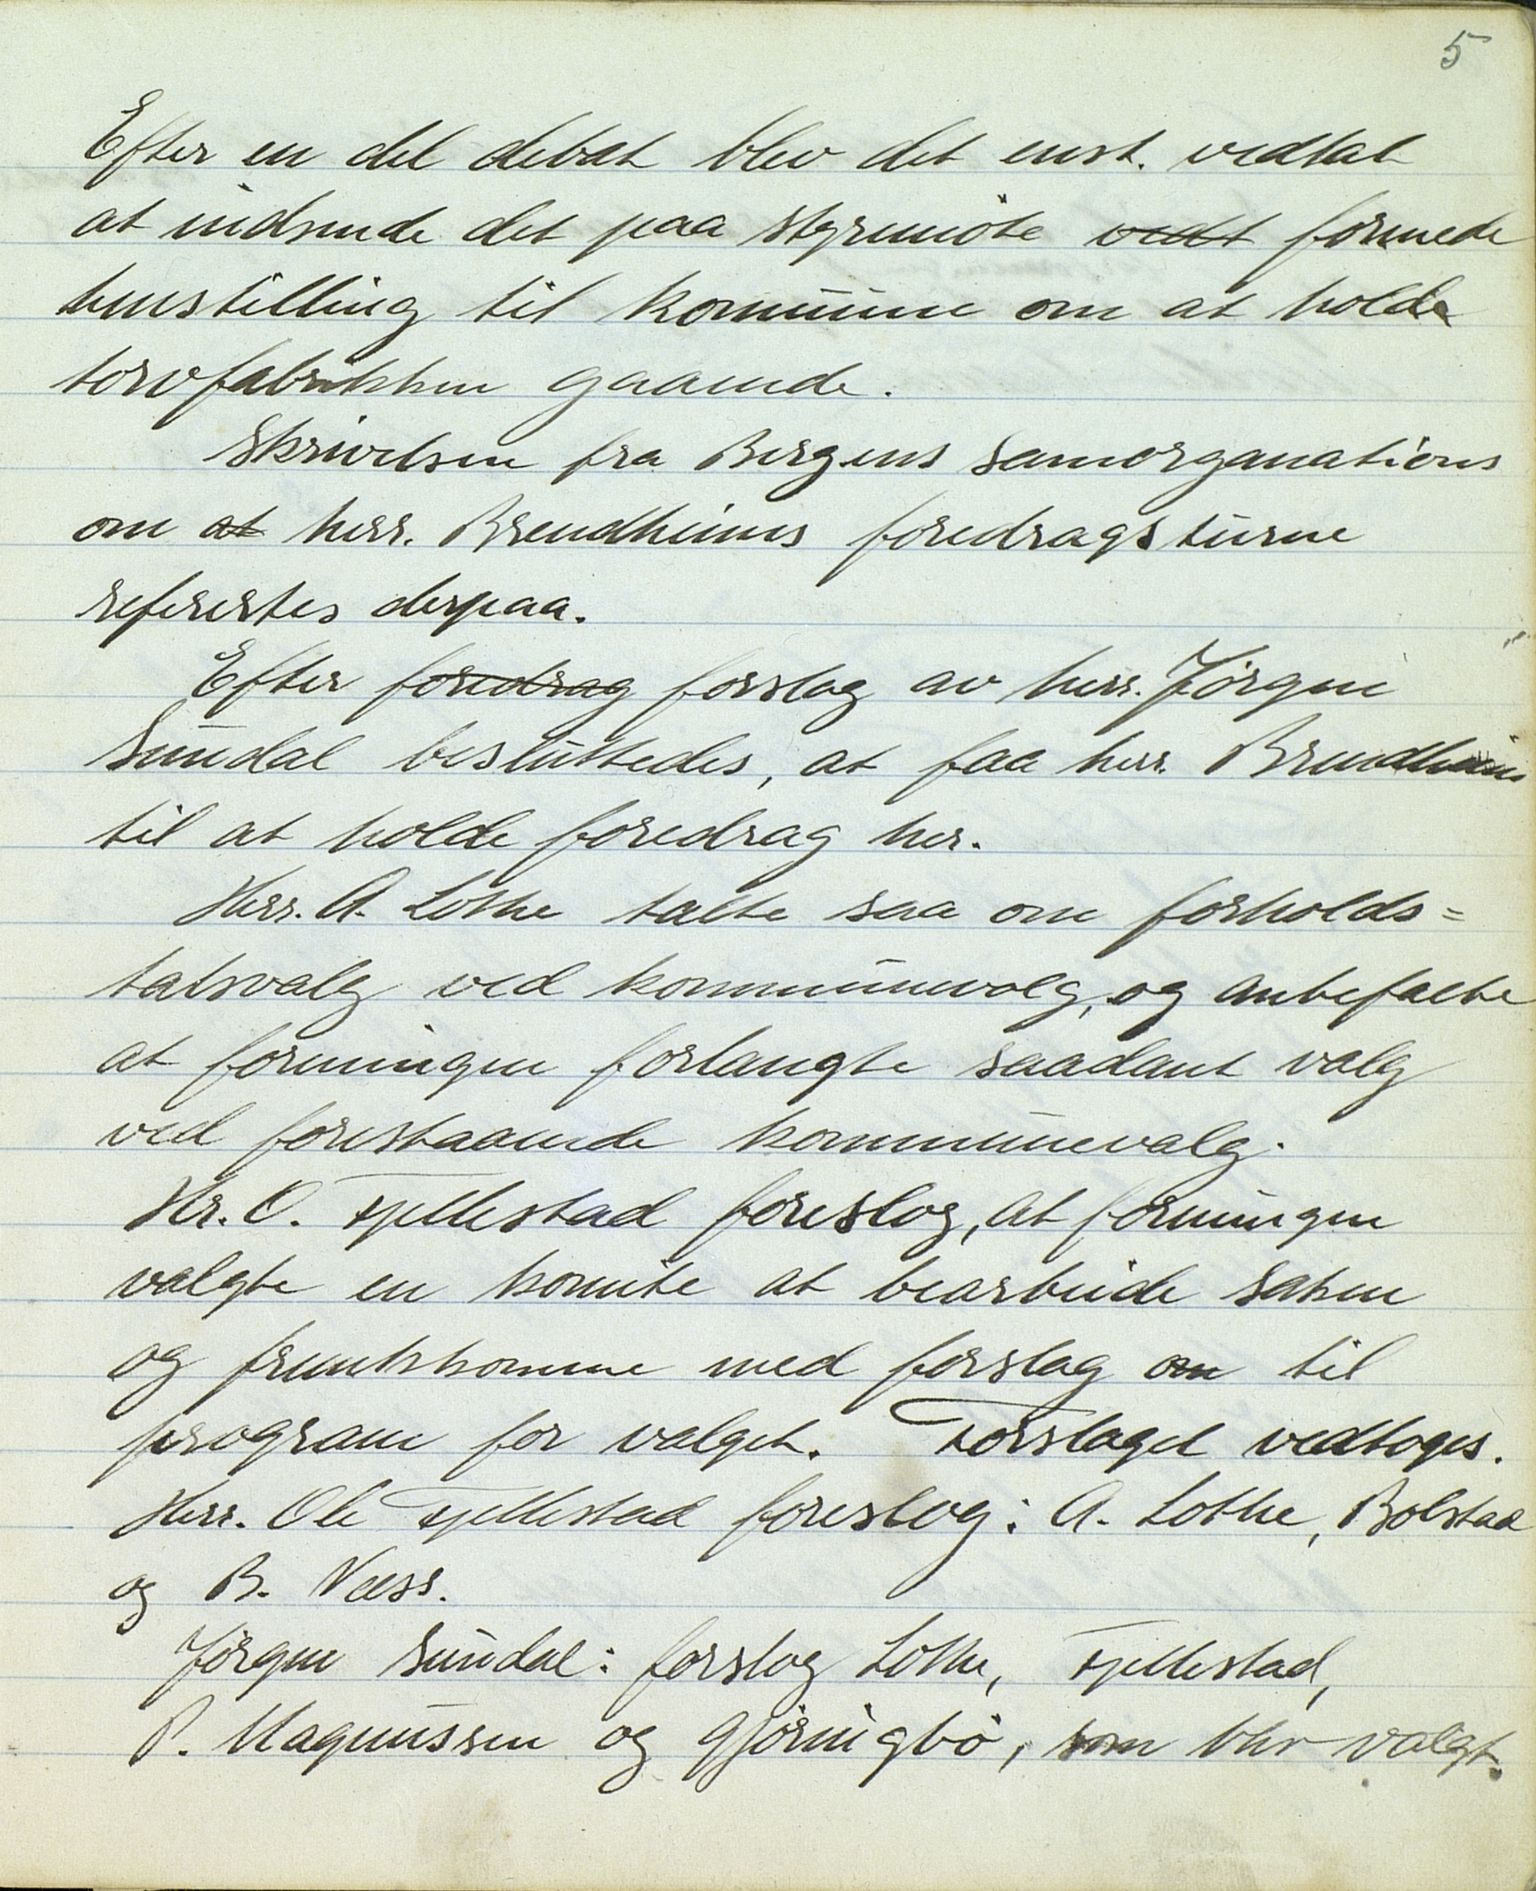 5
Efter en del debat blev det enst. vedtat
at indsende det paa styremöte vedt formede
henstilling til kommune om at holde
torvfabrikken gaaende.
Skrivelsen fra Bergens samorganations
om at herr. Brendheims foredragsturne
refirertes derpaa.
Efter foredrag forslag av herr. Jörgen
Sundal besluttedes, at faa herr. Brendheim
til at holde foredrag her.
Herr. A. Lothe talte saa om forholds=
talsvalg ved kommunevalg, og anbefalte
at foreningen forlangte saadant valg
ved forestaaende kommunevalg.
Hr. O. Fjellestad foreslog, at foreningen
valgte en komite at bearbeide saken
og fremkomme med forslag om til
program for valget. Forslaget vedtoges.
Herr. Ole Fjellestad foreslog: A. Lothe, Bolstad
og B. Næss.
Jörgen Sundal: forslog Lothe, Fjellestad,
P. Magnussen og Gjöringbö, som blev valgt.